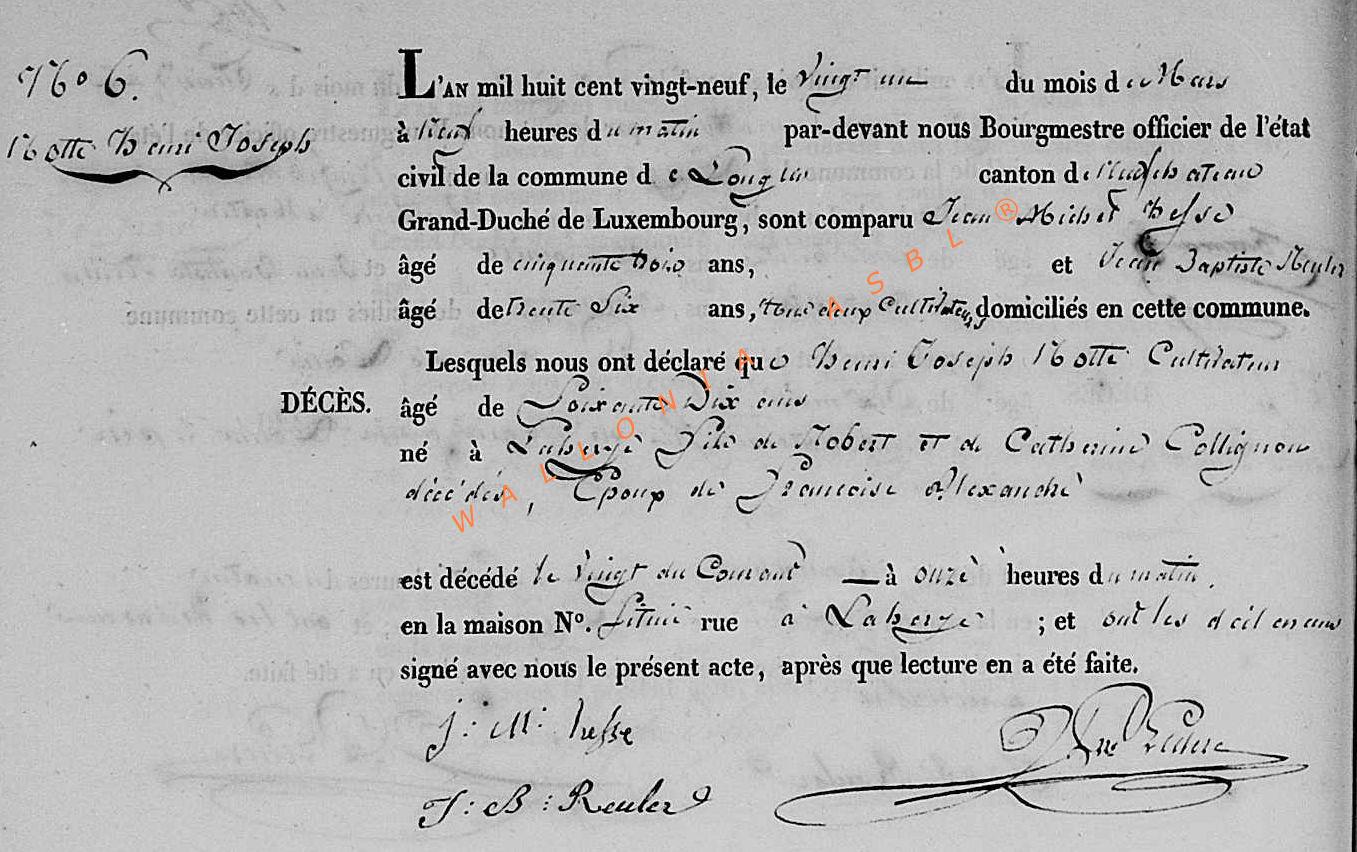 N° 6.
Notte Henri Joseph
L'AN mil huit cent vingt-neuf, le vingt un du mois de Mars
à neuf heures du matin par-devant nous Bourgmestre officier de l'état
civil de la commune de Longlier canton de Neufchateau
Grand-Duché de Luxembourg, sont comparu Jean Michel hesse
âgé de cinquante trois ans, et Jean Baptiste Reuler
âgé de trente Six ans, tous deux Cultivateurs, domiciliés en cette commune.
Lesquels nous ont déclaré que Henri Joseph Notte Cultivateur
DÉCÈS. âgé de Soixante Dix ans
né à Laherye fils de Robert et de Catherine Collignon
décédés, Epoux de Francoise Alexandre
est décédé le vingt du Courant à onze heures du matin.
en la maison N°. située rue à Laherye ; et ont les déclarans
signé avec nous le présent acte, après que lecture en a été faite.
J: M: hesse
J: B: Reuler
WALLONIA ASBL ®